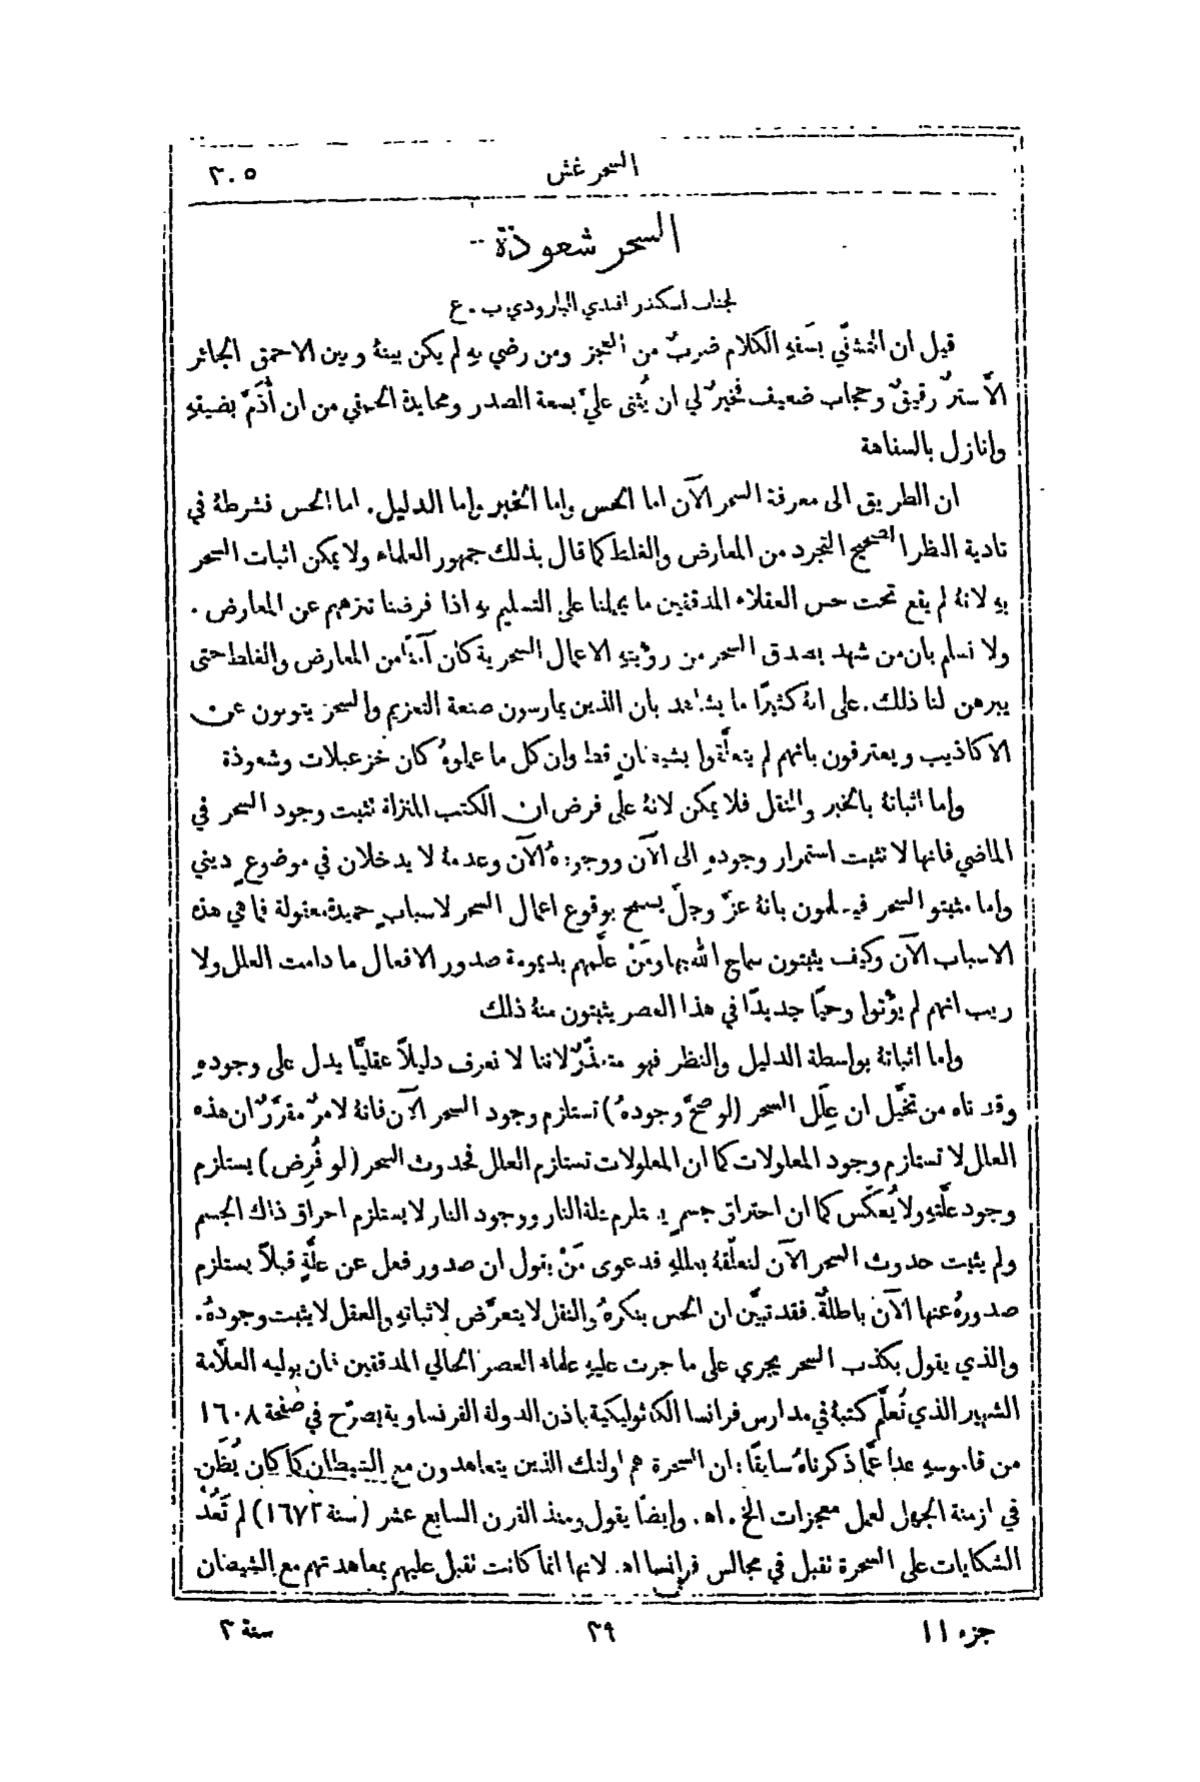 السحر غش
٣٠٥
السحر شعوذة
لجناب اسكندر افندي البارودي ب. ع
قيل ان التشفّي بسَفَهِ الكلام ضربٌ من العجز ومن رضي بهِ لم يكن بينهُ وبين الاحمق الجائر
الَّا سترٌ رقيقٌ وحجاب ضعيف فخيرٌ لي ان يُثنى عليَّ بسعة الصدر ومحايدة الحمقى من ان أُذَمَّ بضيقهِ
وانازل بالسفاهة
ان الطريق الى معرفة السحر الآن اما الحس واما الخبر واما الدليل. اما الحس فشرطهُ في
تادية النظر الصحيح التجرد من المعارض والغلط كما قال بذلك جمهور العلماء ولا يمكن اثبات السحر
بهِ لانهُ لم يقع تحت حس العقلاء المدققين ما يحملنا على التسليم بهِ اذا فرضنا تنزههم عن المعارض .
ولا نسلم بان من شهد بصدق السحر من رؤيتهِ الاعمال السحرية كان آمنًا من المعارض والغلط حتى
يبرهن لنا ذلك. على انهُ كثيرًا ما يشاهد بان الذين يمارسون صنعة التعزيم والسحر يتوبون عن
الاكاذيب ويعترفون بانهم لم يتعلَّقوا بشيطانٍ قط وان كل ما عملوهُ كان خزعبلات وشعوذة
واما اثباتهُ بالخبر والنقل فلا يمكن لانهُ على فرض ان الكتب المنزلة تثبت وجود السحر في
الماضي فانها لا تثبت استمرار وجودهِ الى الآن ووجودهُ الآن وعدمهُ لا يدخلان في موضوعٍ ديني
واما مثبتو السحر فيسلمون بانهُ عزَّ وجلَّ يسمح بوقوع اعمال السحر لاسبابٍ حميدة معقولة فما هي هذه
الاسباب الآن وكيف يثبتون سماح الله بها ومَنْ علَّمهم بديمومة صدور الافعال ما دامت العلل ولا
ريب انهم لم يؤْتوا وحيًا جديدًا في هذا العصر يثبتون منهُ ذلك
واما اثباتهُ بواسطة الدليل والنظر فهو متعذّرٌ لاننا لا نعرف دليلاً عقليًّا يدل على وجودهِ
وقد تاه من تخيَّل ان عِلَل السحر (لو صحَّ وجودهُ) تستلزم وجود السحر الآن فانهُ لامرٌ مقرَّرٌ ان هذه
العلل لا تستلزم وجود المعلولات كما ان المعلولات تستلزم العلل فحدوث السحر (لو فُرِض) يستلزم
وجود علَّتهِ ولا يُعكَس كما ان احتراق جسمٍ يستلزم علة النار ووجود النار لا يستلزم احراق ذاك الجسم
ولم يثبت حدوث السحر الآن لنعلّقهُ بعللهِ فدعوى مَنْ يقول ان صدور فعل عن علَّةٍ قبلاً يستلزم
صدورهُ عنها الآن باطلةٌ. فقد تبيَّن ان الحس ينكرهُ والنقل لا يتعرَّض لاثباتهِ والعقل لا يثبت وجودهُ.
والذي يقول بكذب السحر يجري على ما جرت عليهِ علماء العصر الحالي المدققين فان بوليه العلَّامة
الشهير الذي تُعلَّم كتبهُ في مدارس فرانسا الكاثوليكية باذن الدولة الفرنساوية يصرّح في صفحة ١٦٠٨
من قاموسهِ عدا عمَّا ذكرناهُ سابقًا: ان السحرة هم اولئك الذين يتعاهدون مع الشيطان كما كان يُظَن
في ازمنة الجهل لعمل معجزات الخ. اه. وايضًا يقول ومنذ القرن السابع عشر (سنة ١٦٧٢) لم تَعُدْ
الشكايات على السحرة تقبل في مجالس فرانسا اه. لانها انما كانت تقبل عليهم بمعاهدتهم مع الشيطان
جزء ١١
٣٩
سنة ٢